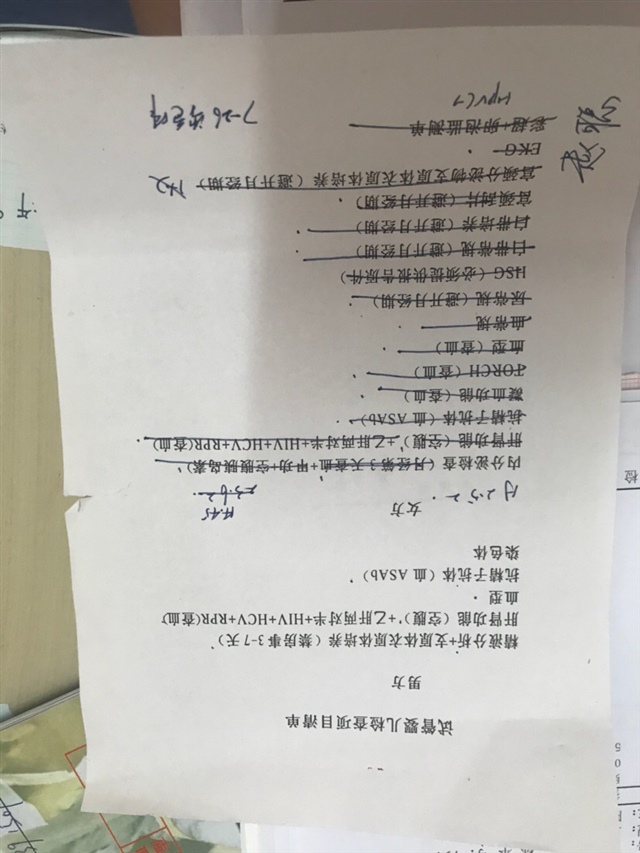 试管婴儿检查项目清单
男方
精液分析+支原体衣原体培养（禁房事3-7天）
肝肾功能（空腹）+乙肝两对半+HIV+HCV+RPR(查血)
血型
抗精子抗体（血 ASAb）
染色体
女方
内分泌检查（月经第3天查血+甲功+空腹胰岛素）
肝肾功能（空腹）+乙肝两对半+HIV+HCV+RPR(查血)
抗精子抗体（血 ASAb）
凝血功能（查血）
TORCH（查血）
血型（查血）
血常规
尿常规（避开月经期）
HSG（必须提供报告原件）
白带常规（避开月经期）
白带培养（避开月经期）
宫颈刮片（避开月经期）
宫颈分泌物支原体衣原体培养（避开月经期）
EKG
彩超+卵泡监测单